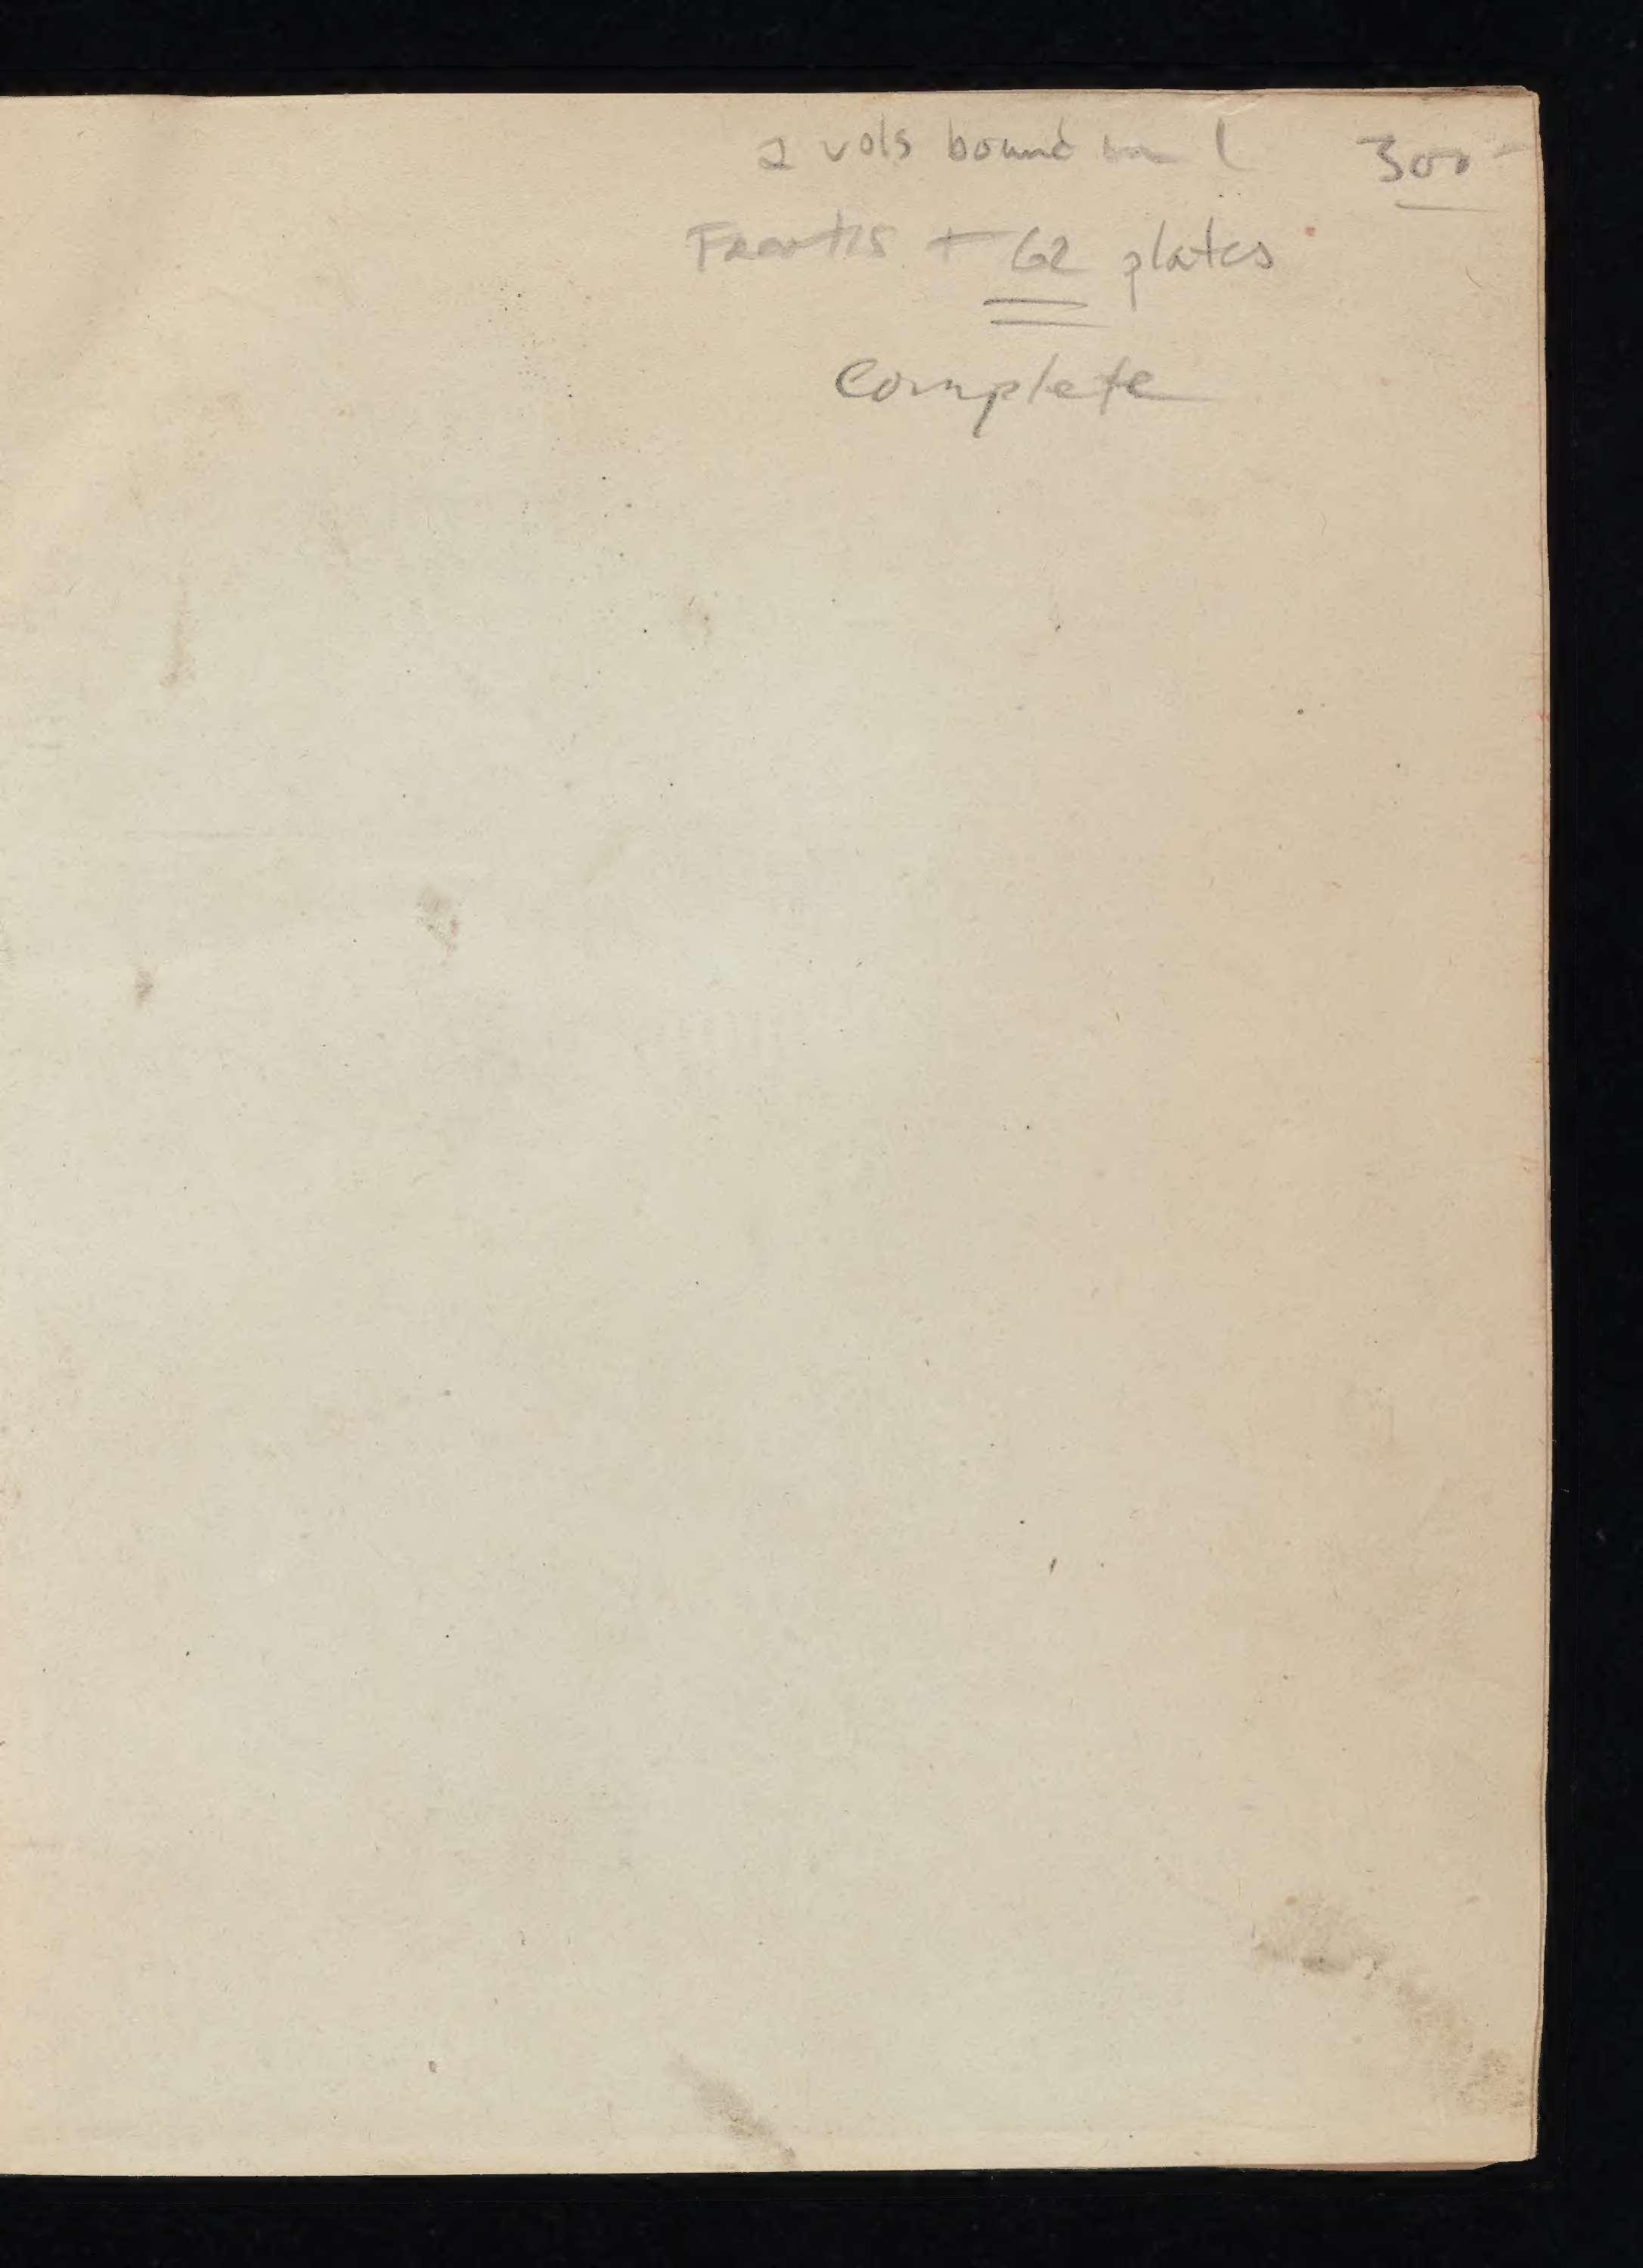 2 vols bound in 1 300-
Frontis + 62 plates
Complete